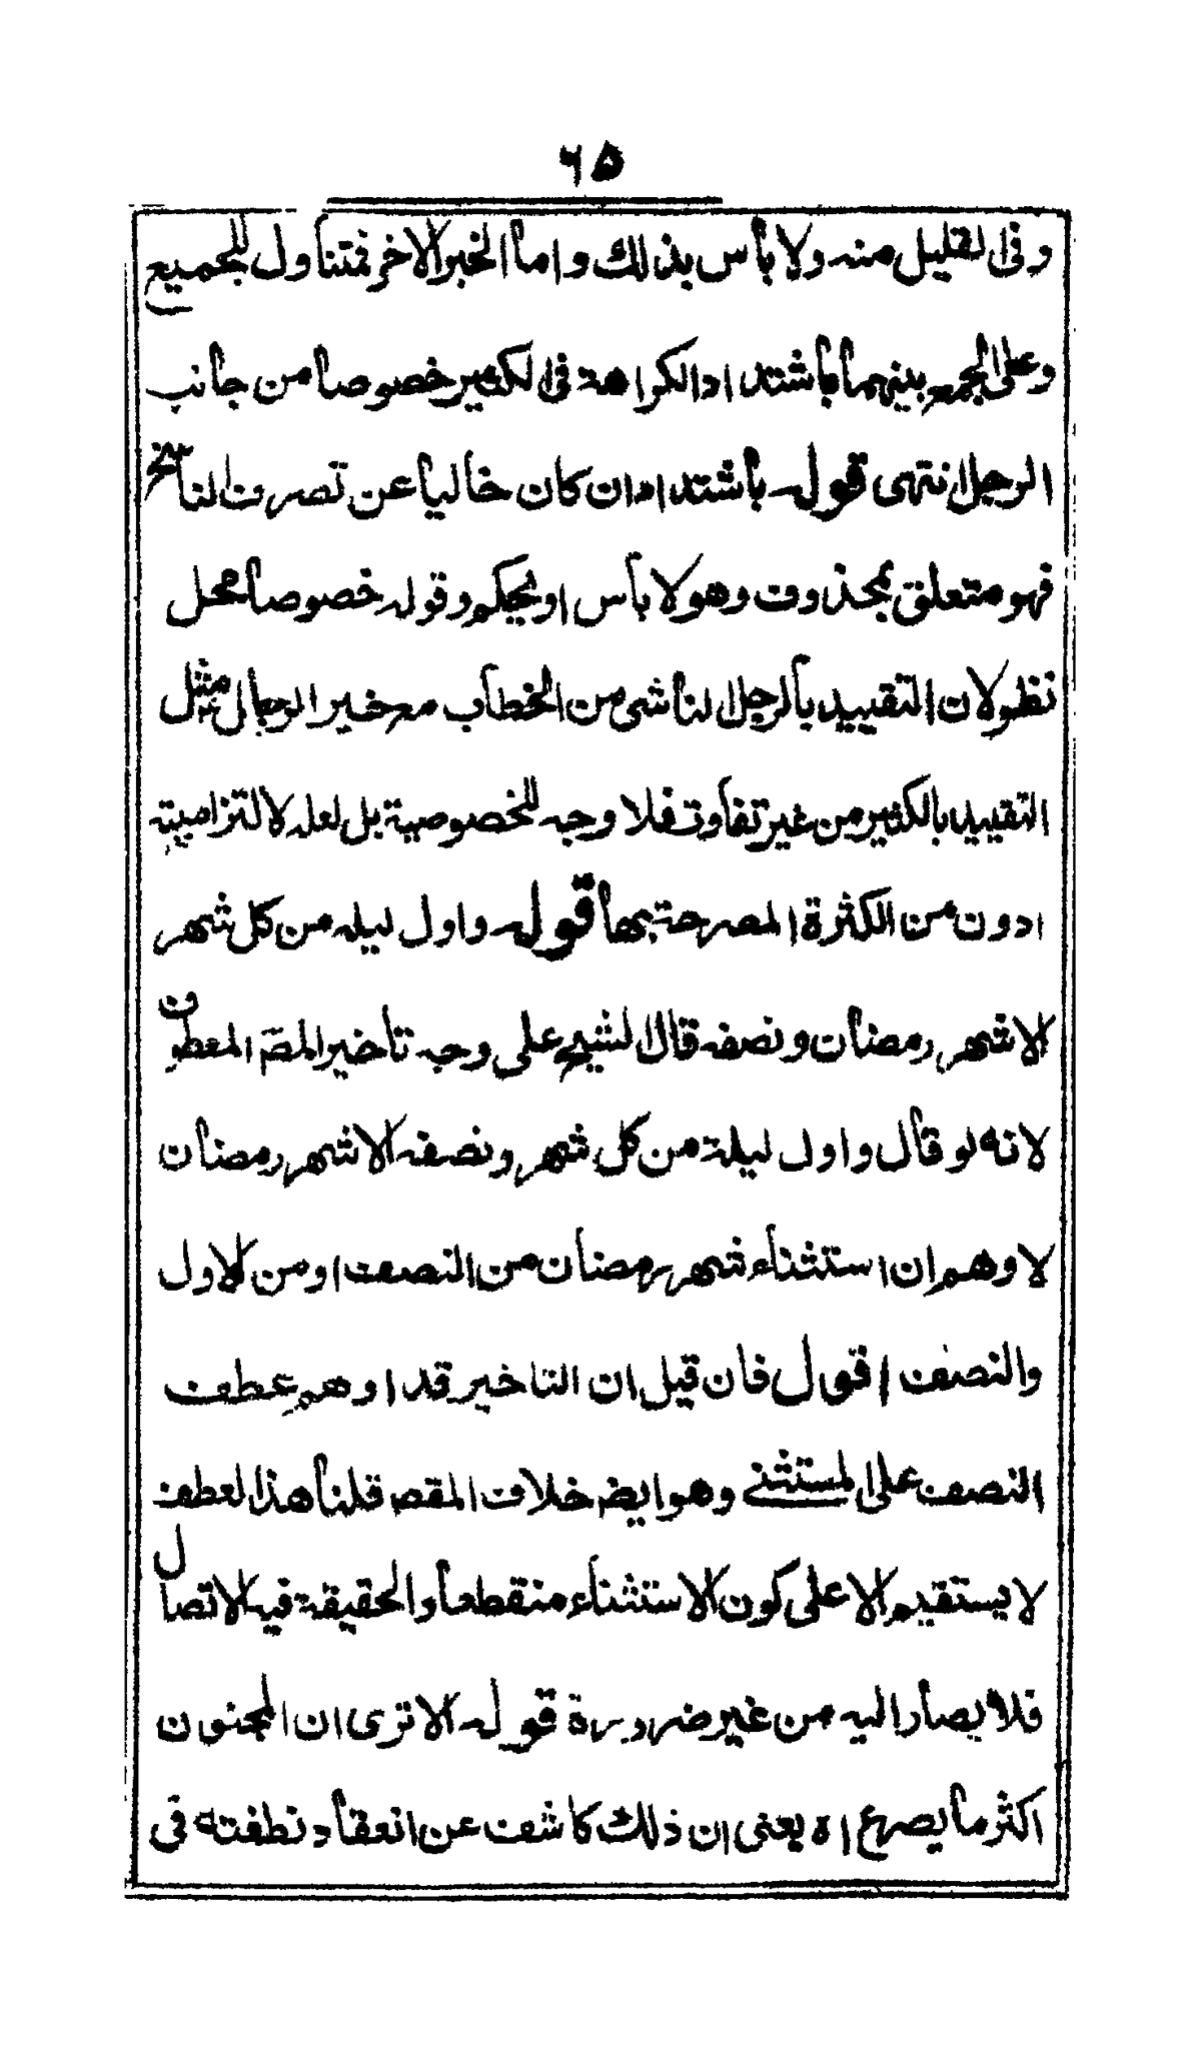 ٦٥
وفى القليل منه ولا بأس بذلك واما الخبر الاخر فمتناول للجميع
وعلى الجمع بينهما باشتداد الكراهة فى الكثير خصوصا من جانب
الرجل انتهى قوله باشتداد ان كان خاليا عن تصرف الناسخ
فهو متعلق بمحذوف وهو لا بأس او يحكم وقوله خصوصا محل
نظر لان التقييد بالرجل الناشى من الخطاب مع خير الرجال مثل
التقييد بالكثير من غير تفاوت فلا وجه للخصوصية بل لعله لالتزاميته
ادون من الكثرة المصرحة بها قوله واول ليله من كل شهر
الا شهر رمضان ونصفه قال الشيخ على وجه تأخير المصّ المعطوف
لانه لو قال واول ليلة من كل شهر ونصفه الا شهر رمضان
لاوهم ان استثناء شهر رمضان من النصف او من الاول
والنصف اقول فان قيل ان التاخير قد اوهم عطف
النصف على المستثنى وهو ايضم خلاف المقصم قلنا هذا العطف
لا يستقيم الا على كون الاستثناء منقطعا والحقيقة فيه الاتصال
فلا يصار اليه من غير ضرورة قوله الا ترى ان المجنون
اكثر ما يصرع اه يعنى ان ذلك كاشف عن انعقاد نطفته فى